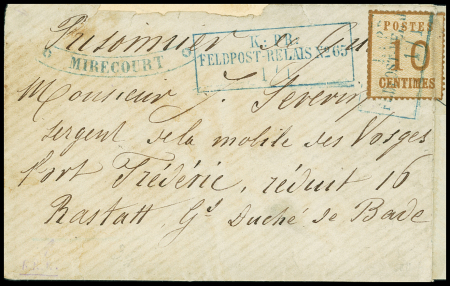 Prisonnier de Guerre
MIRECOURT
K. PR.
FELDPOST-RELAIS No 65
1/1
POSTE
10
CENTIMES
Monsieur J. Severin
sergent de la mobile des Vosges
Fort Frédéric, réduit 16
Rastatt Gd Duché de Bade